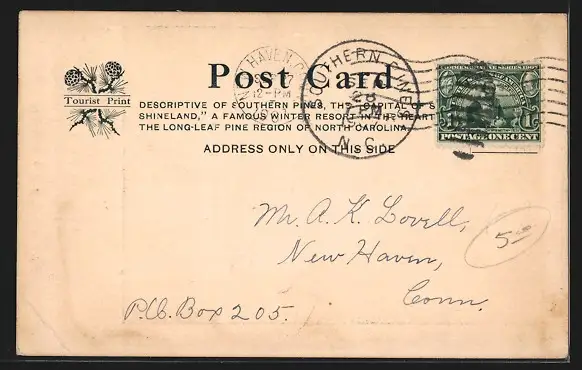 Post Card
Tourist Print
DESCRIPTIVE OF SOUTHERN PINES, THE "CAPITAL OF S
SHINELAND," A FAMOUS WINTER RESORT IN THE HEART
THE LONG-LEAF PINE REGION OF NORTH CAROLINA.
ADDRESS ONLY ON THIS SIDE
HAVEN, CO
12-PM
SOUTHERN PINES
N.C.
COMMEMORATIVE SERIES 1907
1 1
POSTAGE ONE CENT
Mr. A. K. Lovell,
New Haven,
Conn.
P.O. Box 205.
5